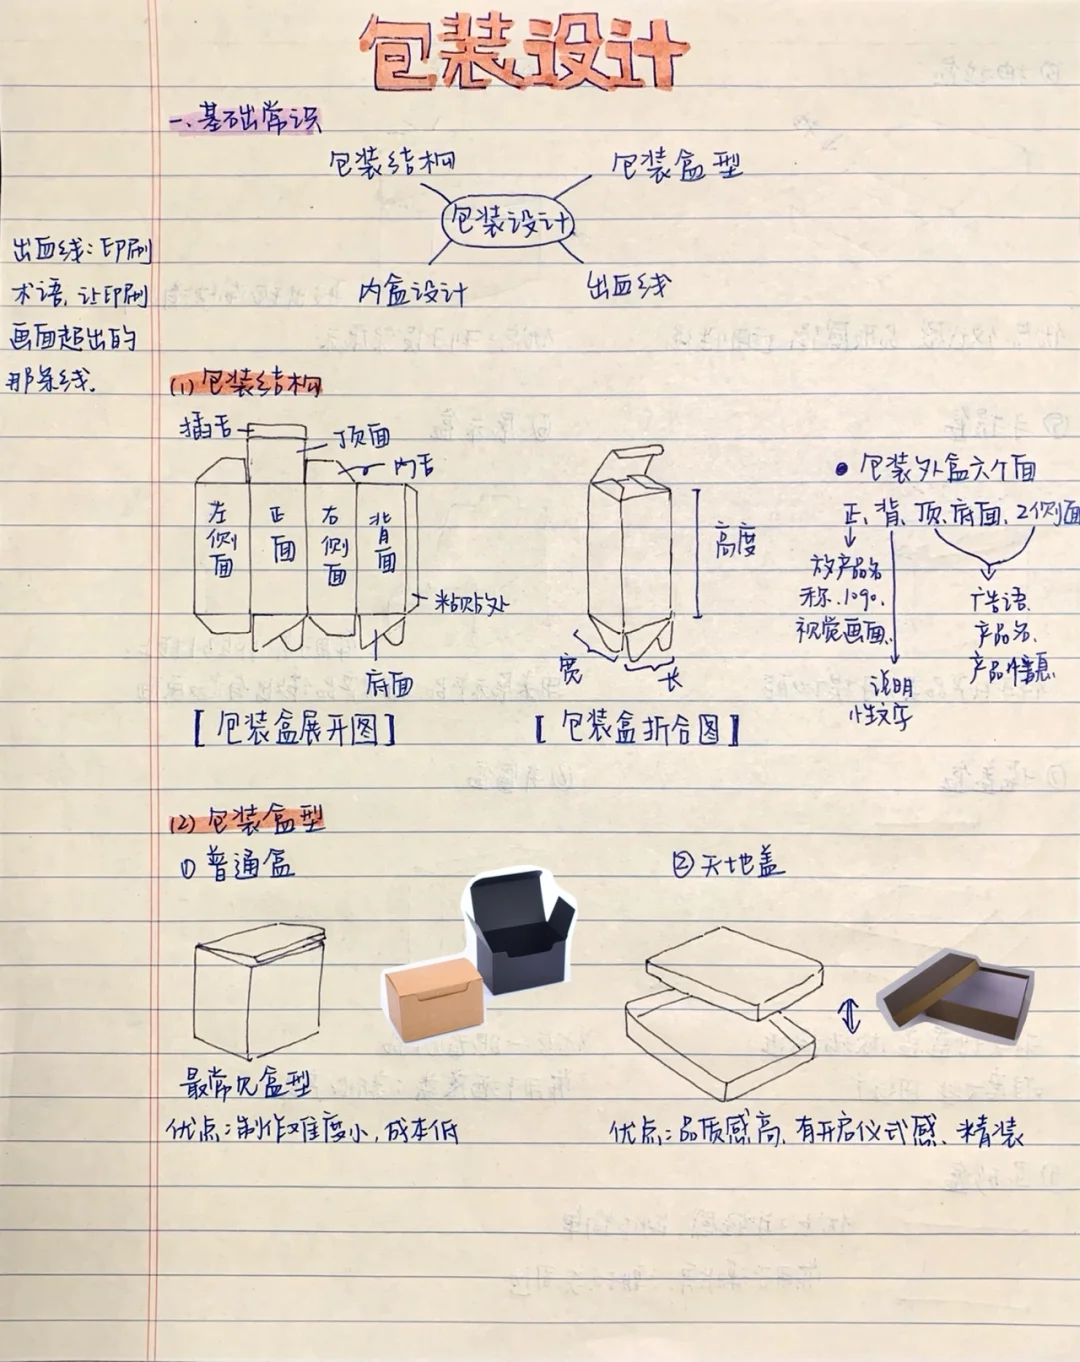 包装设计
一、基础常识
包装结构
包装盒型
包装设计
内盒设计
出血线
出血线：印刷
术语，让印刷
画面超出的
那条线.
(1) 包装结构
插舌
顶面
内舌
左侧面
正面
右侧面
背面
粘贴处
底面
[ 包装盒展开图 ]
高度
宽
长
[ 包装盒折合图 ]
● 包装外盒六个面
正、背、顶、底面、2侧面
放产品名
称、logo、
视觉画面、
说明
性文字
广告语、
产品名、
产品信息
(2) 包装盒型
① 普通盒
最常见盒型
优点：制作难度小，成本低
② 天地盖
优点：品质感高、有开启仪式感、精装